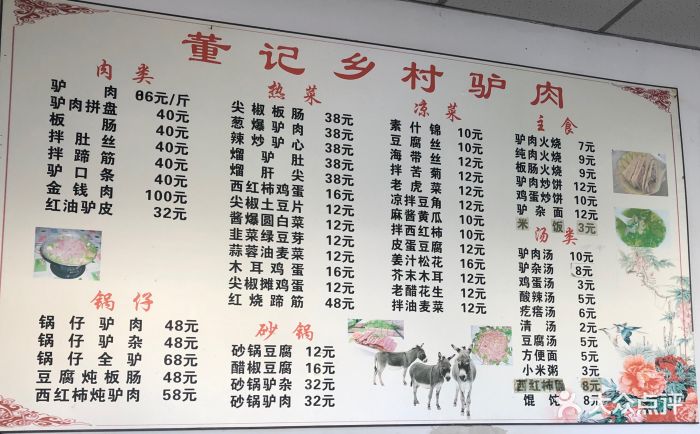 董记乡村驴肉
肉类
驴肉 86元/斤
驴肉拼盘 40元
板肠 40元
拌肚丝 40元
拌蹄筋 40元
驴口条 40元
金钱肉 100元
红油驴皮 32元
锅仔
锅仔驴肉 48元
锅仔驴杂 48元
锅仔全驴 68元
豆腐炖板肠 48元
西红柿炖驴肉 58元
热菜
尖椒板肠 38元
葱爆驴肉 38元
辣炒驴心 38元
熘驴肚 38元
熘肝尖 38元
西红柿鸡蛋 16元
尖椒土豆片 12元
酱爆圆白菜 12元
韭菜绿豆芽 12元
蒜蓉油麦菜 12元
木耳鸡蛋 16元
尖椒摊鸡蛋 12元
红烧蹄筋 48元
砂锅
砂锅豆腐 12元
醋椒豆腐 16元
砂锅驴杂 32元
砂锅驴肉 32元
凉菜
素什锦 10元
豆腐丝 10元
海带丝 12元
拌苦菊 12元
老虎菜 12元
凉拌豆角 12元
麻酱黄瓜 10元
拌西红柿 10元
皮蛋豆腐 12元
姜汁松花 16元
芥末木耳 12元
老醋花生 12元
拌油麦菜 12元
主食
驴肉火烧 7元
纯肉火烧 9元
板肠火烧 9元
驴肉炒饼 12元
鸡蛋炒饼
驴杂面 12元
米饭 3元
汤类
驴肉汤 10元
驴杂汤 8元
鸡蛋汤 3元
酸辣汤 5元
疙瘩汤 6元
清汤 2元
豆腐汤 5元
方便面 5元
小米粥 3元
西红柿 8元
馄饨 8元
大众点评